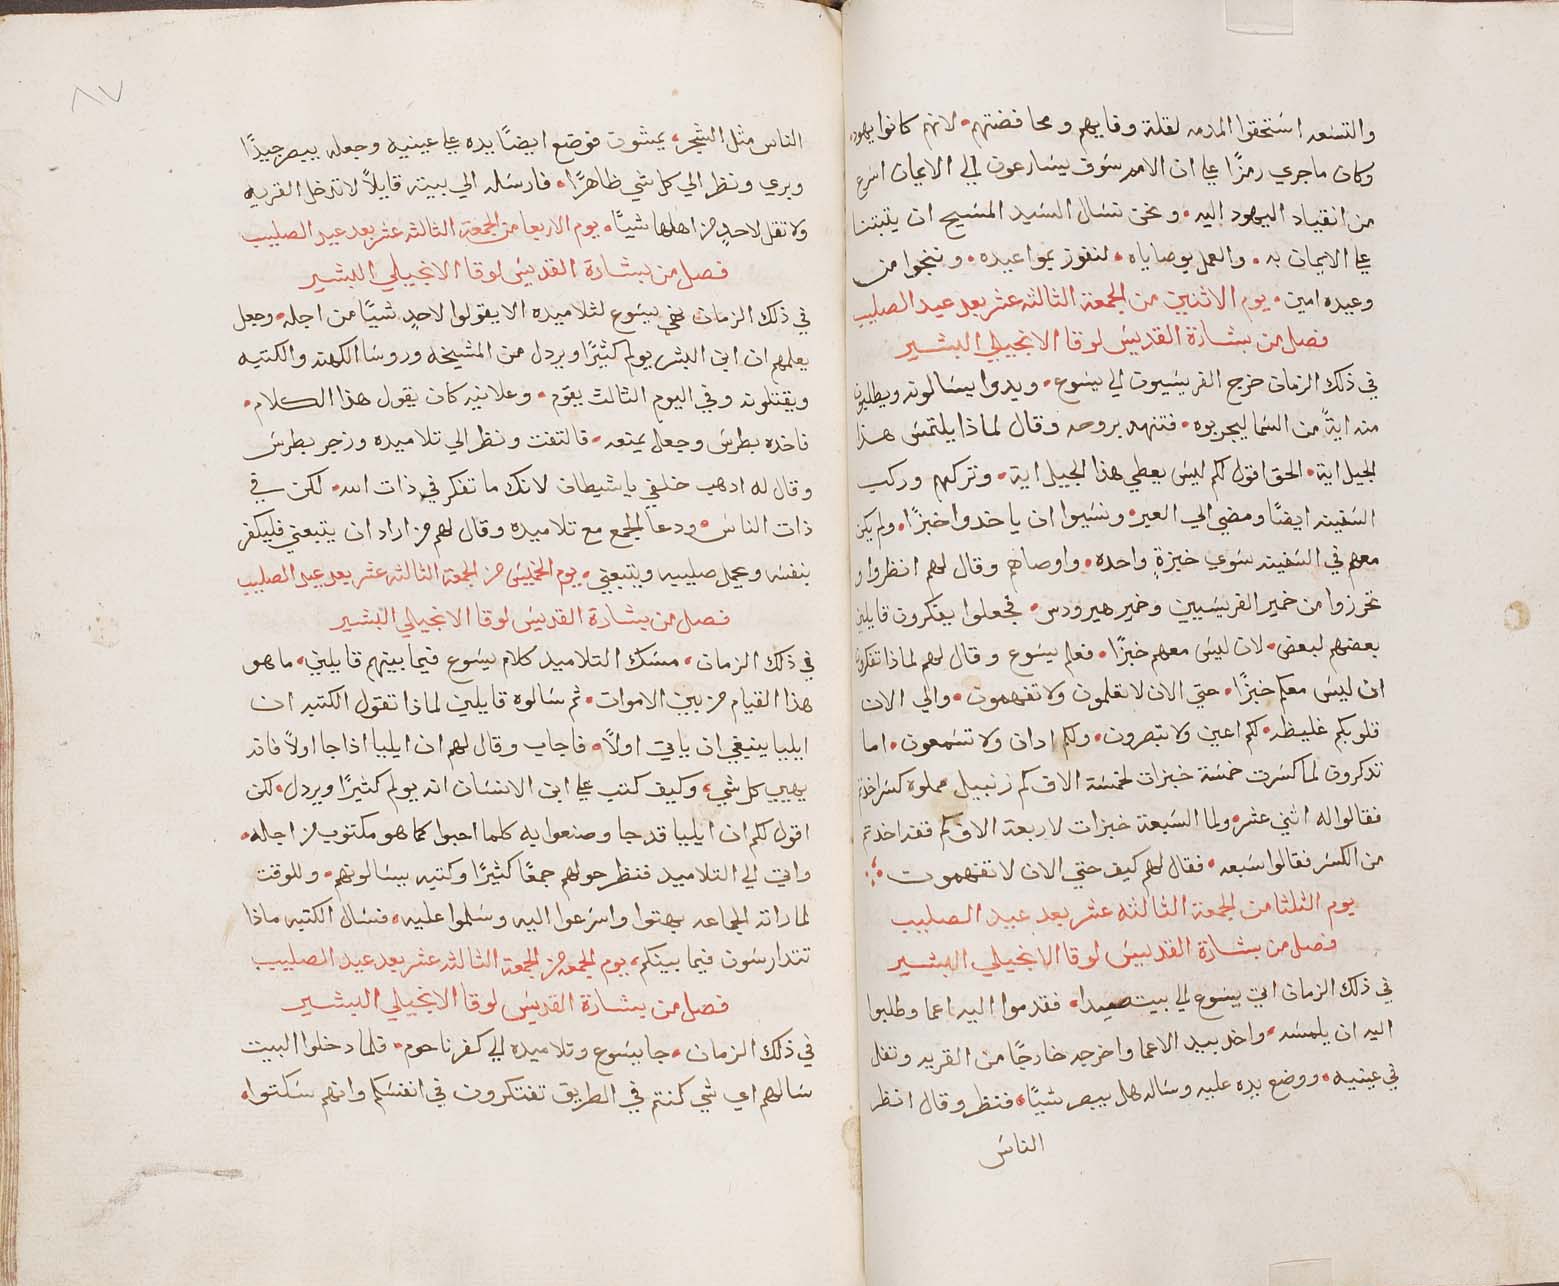 والتسعه استحقوا المذمه لقلة وفايهم ومحافضتهم. لانهم كانوا يهود
وكان ماجري رمزًا علي ان الامم سوف يسارعون الي الايمان اسرع
من انقياد اليهود اليه. ونحن نسال السيد المسيح ان يثبتنا
علي الايمان به. والعمل بوصاياه. لنفوز بمواعيده. وننجوا من
وعيده امين. يوم الاثنين من الجمعة الثالثه عشر بعد عيد الصليب
فصل من بشارة القديس لوقا الانجيلي البشير
في ذلك الزمان خرج الفريسيون الي يسوع. وبدوا يسالونه ويطلبون
منه ايةً من السما ليجربوه. فتنهد بروحه وقال لماذا يلتمس هذا
الجيل اية. الحق اقول لكم ليس يعطي هذا الجيل اية. وتركهم وركب
السفينه ايضًا ومضي الي العبر. ونسيوا ان ياخدوا خبزًا. ولم يكن
معهم في السفينه سوي خبزةٍ واحده. واوصاهم وقال لهم انظروا و
تحرزوا من خمير الفريسيين وخمير هيرودس. فجعلوا يفكرون قايلين
بعضهم لبعض. لان ليس معهم خبزًا. فعلم يسوع وقال لهم لماذا تفكرون
ان ليس معكم خبزًا. حتي الان لا تعلمون ولا تفهمون. والي الان
قلوبكم غليظه. لكم اعين ولا تبصرون. ولكم ادان ولا تسمعون. اما
تذكرون لما كسرت خمسة خبزات لخمسة الاف كم زنبيل مملوه كسر اخذتم
فقالوا له اثني عشر. ولما السبعة خبزات لاربعة الاف كم قفه اخدتم
من الكسر فقالوا سبعه. فقال لهم كيف حتي الان لا تفهمون
يوم الثلثا من الجمعة الثالثه عشر بعد عيد الصليب
فصل من بشارة القديس لوقا الانجيلي البشير
في ذلك الزمان اتي يسوع الي بيت صيدا. فقدموا اليه اعما وطلبوا
اليه ان يلمسه. واخد بيد الاعما واخرجه خارجًا من القريه وتفل
في عينيه. ووضع يده عليه وساله هل يبصر شيًا. فنظر وقال انظر
الناس
٨٧
الناس مثل الشجر، يمشون فوضع ايضًا يده علي عينيه وجعله يبصر جيدًا
وبري ونظر الي كل شي ظاهرًا. فارسله الي بيته قايلاً لا تدخل القريه
ولا تقل لاحدٍ من اهلها شيًا. يوم الاربعا من الجمعة الثالثه عشر بعد عيد الصليب
فصل من بشارة القديس لوقا الانجيلي البشير
في ذلك الزمان نهي يسوع لتلاميده الا يقولوا لاحدٍ شيًا من اجله. وجعل
يعلمهم ان ابن البشر يولم كثيرًا ويردل من المشيخه وروسا الكهنه والكتبه
ويقتلونه وفي اليوم الثالث يقوم. وعلانيه كان يقول هذا الكلام.
فاخده بطرس وجعل يمنعه. فالتفت ونظر الي تلاميده وزجر بطرس
وقال له ادهب خلفي ياشيطان لانك ما تفكر في ذات الله. لكن في
ذات الناس. ودعا الجمع مع تلاميده وقال لهم من اراد ان يتبعني فليكفر
بنفسه ويحمل صليبه ويتبعني. يوم الخميس من الجمعة الثالثه عشر بعد عيد الصليب
فصل من بشارة القديس لوقا الانجيلي البشير
في ذلك الزمان، مسك التلاميد كلام يسوع فيما بينهم قايلين. ما هو
هذا القيام من بين الاموات. ثم سالوه قايلين لماذا تقول الكتبه ان
ايليا ينبغي ان ياتي اولاً. فاجاب وقال لهم ان ايليا اذا جا اولاً فانه
يهيي كل شي، وكيف كتب علي ابن الانسان انه يولم كثيرًا ويردل. لكن
اقول لكم ان ايليا قد جا وصنعوا به كلما احبوا كما هو مكتوب من اجله.
واتي الي التلاميد فنظر حولهم جمعًا كثيرًا وكتبه يسالونهم. وللوقت
لما راته الجماعه بهتوا واسرعوا اليه وسلموا عليه. فسال الكتبه ماذا
تتدارسون فيما بينكم، يوم الجمعه من الجمعة الثالثه عشر بعد عيد الصليب
فصل من بشارة القديس لوقا الانجيلي البشير
في ذلك الزمان. جا يسوع وتلاميده الي كفرناحوم. فلما دخلوا البيت
سالهم اي شي كنتم في الطريق تفتكرون في انفسكم وانهم سكتوا.